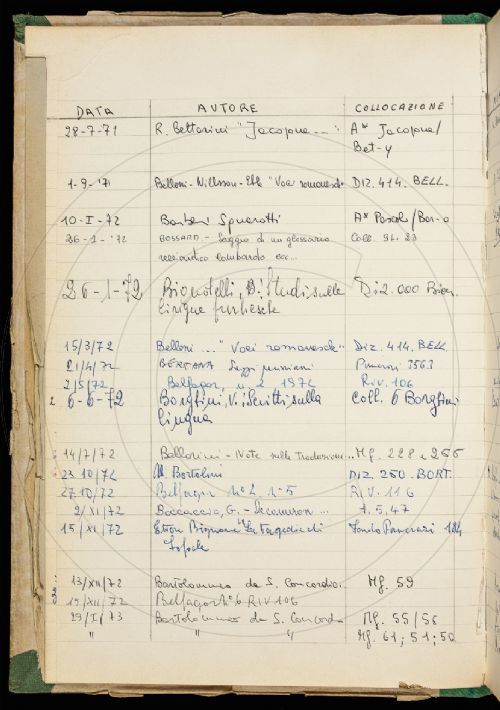 DATA AUTORE COLLOCAZIONE
28-7-71 R. Bettarini "Jacopone...": Aᵛ Jacopone/
Bet-y
1-9-'71 Belloni-Nillsson-Ehle "Voci romanesche DIZ 414. BELL.
10-I-72 Barberi Squarotti Aᵛ Pascoli/Bar-
26-1-'72 BOSSARD - Saggio di un glossario Coll. 94. 23
lombardo ecc...
26-1-72 Studi sulle Diz. 000
lingue furbesche
15/3/72 Belloni ..." Voci romanesche" Diz. 414. BELL
21/4/72 BERTANA 3563
2/5/72 Belfagor, n. 2 1972 RIV. 106
6-6-72 Borghini, V.: Scritti sulla Coll. 6 Borghini
lingua
14/7/72 - Note sulla traduzione... Mf. 228 e 256
23 10/72 M Bortolini DIZ 250. BORT.
27 10/72 Belfagor n° 2 n° 5 RIV. 116
2/XI/72 Boccaccio, G. - Decameron ... A.5.47
15/XI/72 Ettore Bignone "Le Tragedie di Fondo Pancrazi 184
Sofocle
13/XII/72 Bartolommeo da S. Concordio. Mf. 59
14/XII/72 Belfagor n° 6 RIV 106
29/I/73 Bartolommeo da S. Concordio Mf. 55/56
" " " Mf. 61; 51; 50